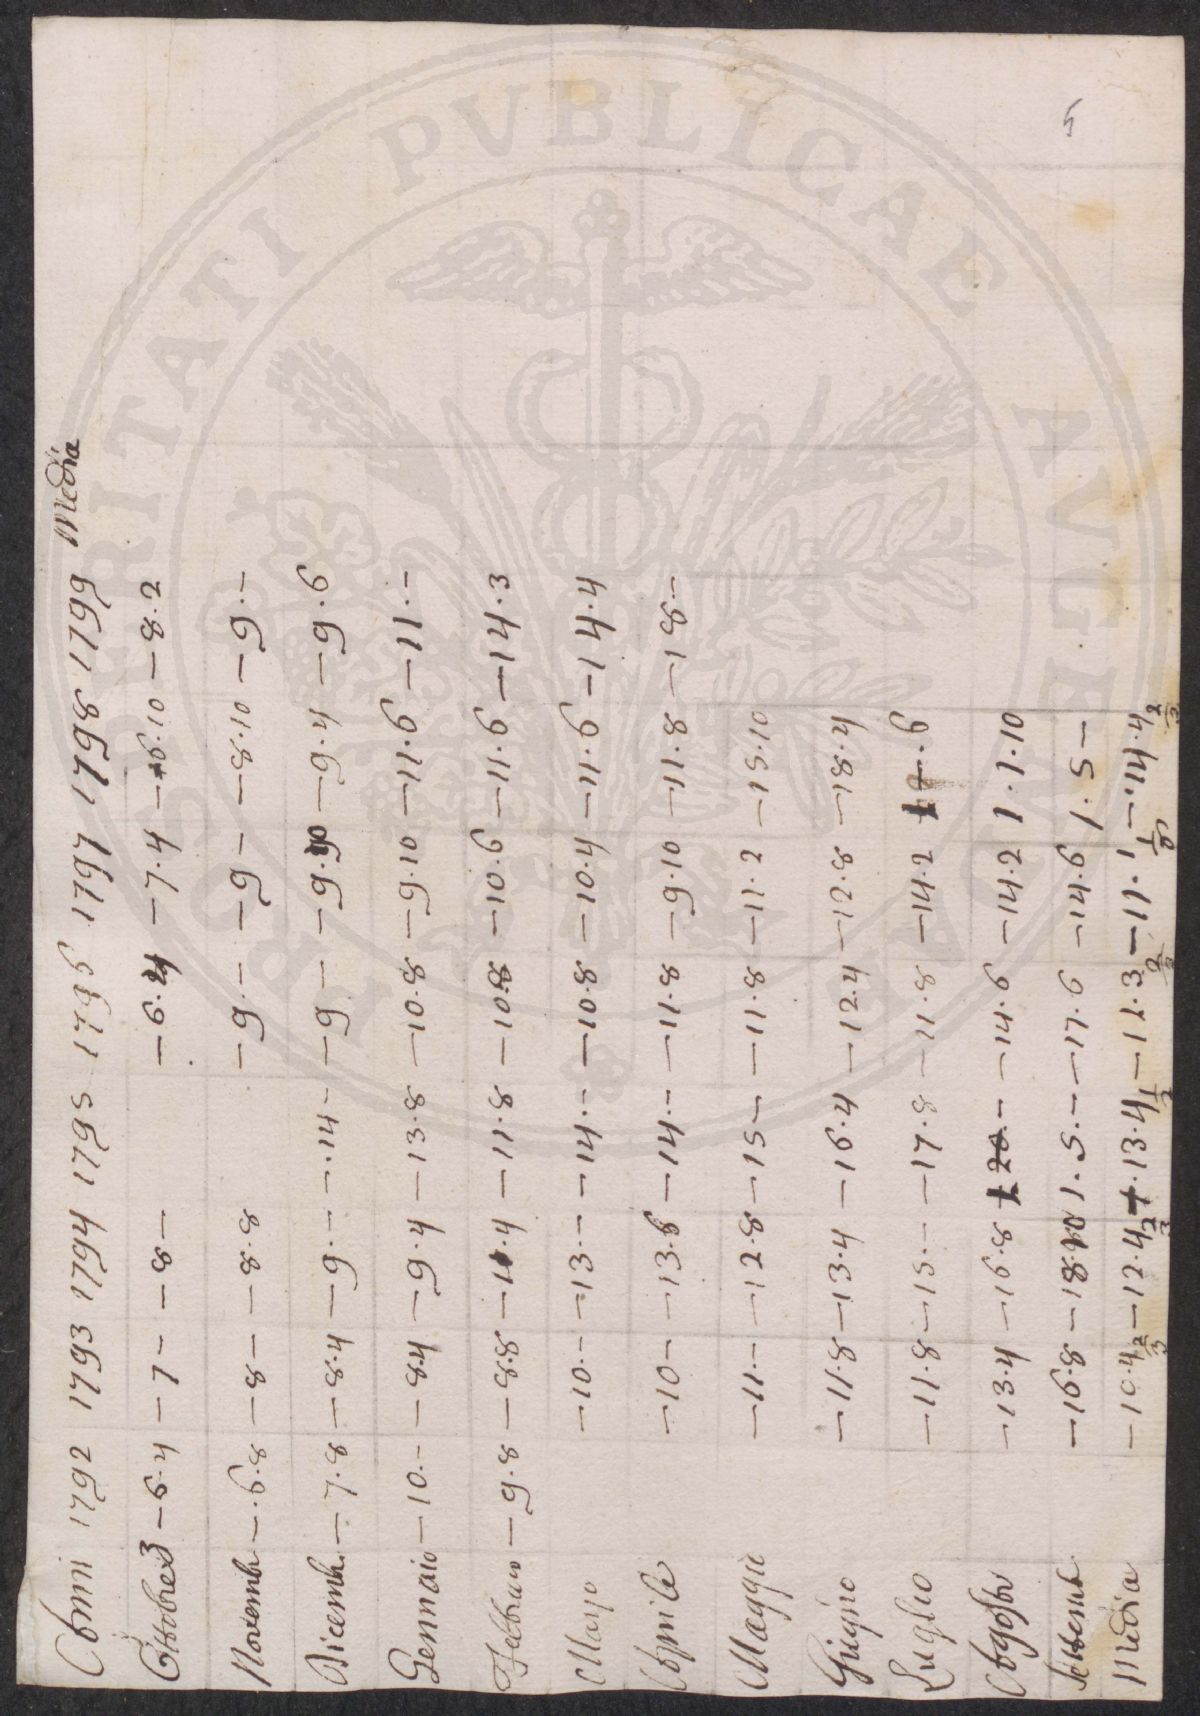 5
Anni 1792 1793 1794 1795 1796 1797 1798 1799 Media
Ottobre – 6.4 – 7 – – 8 – – 6.4 – 7.4 – 6.10 – 8.2
Novemb – 6.8 – 8 – – 8.8 – 9. – – 9 – – 8.10 – 9. –
Dicemb. – 7.8 – 8.4 – 9. – – 14 – – 9 – – 9. – 9.4 – 9.6
Gennaio – 10. – – 8.4 – 9.4 – 13.8 – 10.8 – 9.10 – 11.6 – 11. –
Febbraio – 9.8 – 8.8 – .4 – 11.8 – 10.8 – 10.6 – 11.6 – 14.3
Marzo – 10. – – 13 – – 14. – – 10.8 – 10.4 – 11.6 – 14.4
Aprile – 10 – – 13.6 – 14. – – 11.8 – 9.10 – 11.8 – 18 –
Maggio – 11. – – 12.8 – 15 – – 11.8 – 11.2 – 15.10
Giugno – 11.8 – 13.4 – 16.4 – 12.4 – 12.8 – 18.4
Luglio – 11.8 – 15. – – 17.8 – 11.8 – 14.2 .6
Agosto – 13.4 – 16.8 – 14.6 – 14.2 1.1.10
Settemb – 16.8 – 18. 1.5. – – 17.6 – 14.6 1.5 –
Media – 10.4 2/3 – 12.4 2/3 .13.4 1/2 – 11.3 – 11.1 – 14.4 2/3
PROSPERITATI PVBLICAE AVGENDAE